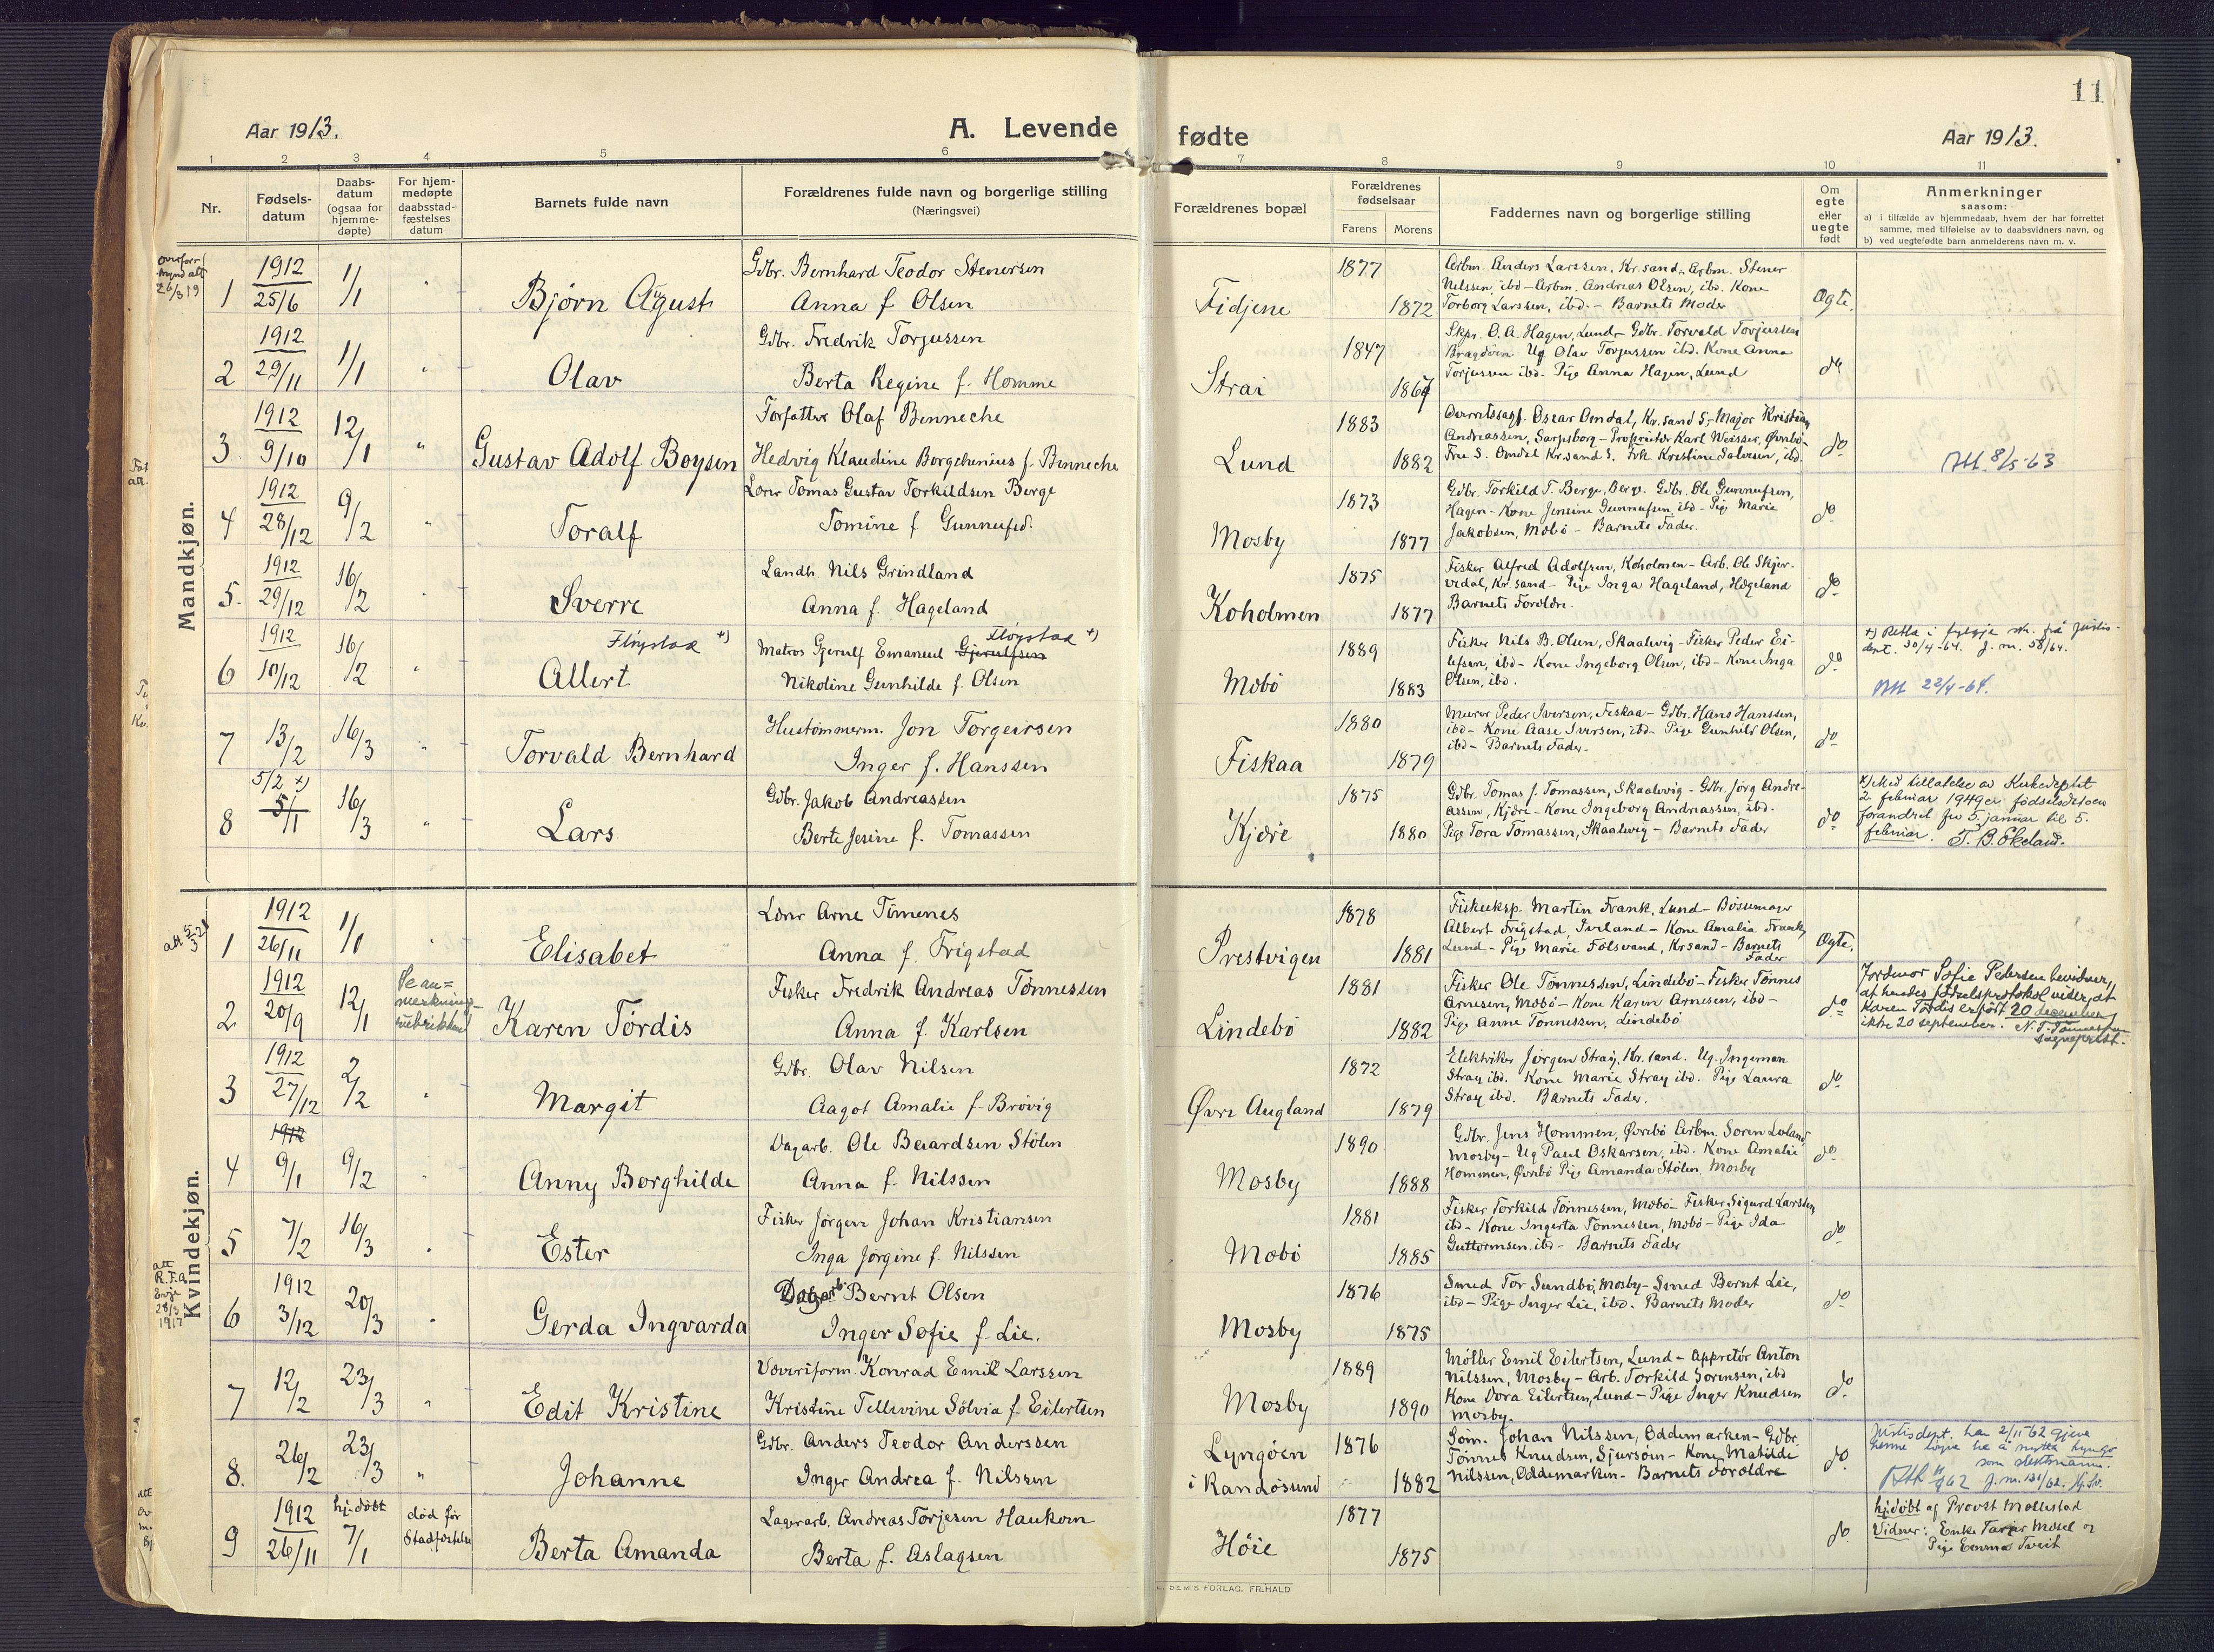 11
Aar 1913.
A. Levende
fødte
Aar 1913.
1 2 3 4 5 6 7 8 9 10 11
Nr.
Fødsels-
datum
Daabs-
datum
(ogsaa for
hjemme-
døpte)
For hjem-
medøpte
daabsstad-
fæstelses
datum
Barnets fulde navn
Forældrenes fulde navn og borgerlige stilling
(Næringsvei)
Forældrenes bopæl
Forældrenes
fødselsaar
Farens Morens
Faddernes navn og borgerlige stilling
Om
egte
eller
uegte
født
Anmerkninger
saasom:
a) i tilfælde av hjemmedaab, hvem der har forrettet
samme, med tilføielse av to daabsvidners navn, og
b) ved uegtefødte barn anmelderens navn m. v.
Mandkjøn.
26/3 19
1 1912 25/6 1/1 " Bjørn August
Gdbr. Bernhard Teodor Stenersen
Anna f. Olsen
Fidjene 1877 1872
Arbm. Anders Larssen, Kr.sand, Arbm. Stener
Nilssen, ibd - Arbm. Andreas Olsen, ibd. Kone
Torborg Larssen, ibd. - Barnets Moder
Ogte.
2 1912 29/11 1/1 " Olav
Gdbr. Fredrik Torjussen
Berta Regine f. Homme
Strai 1847 1867
Skpr. O. A. Hagen, Lund - Gdbr. Torvald Torjussen
Ug Olav Torjussen ibd. Kone Anna
Torjussen ibd. Pige Anna Hagen, Lund
do
3 1912 9/10 12/1 " Gustav Adolf Boysen
Forfatter Olaf Benneche
Hedvig Klaudine f. Benneche
Lund 1883 1882
Oscar Omdal, Kr.sand S. - Major Kristian
Andreassen, Sarpsborg - Proprietær Karl Weisser, Øvrebø -
Fru S. Omdal Kr.sand S. Frk Kristine Salvesen, ibd.
do
Att. 8/5-63
4 1912 28/12 9/2 " Toralf
Lærer Tomas Gustav Torkildsen Berge
Tomine f. Gunnufsd.
Mosby 1873 1877
Gdbr. Torkild T. Berge, Berge. Gdbr. Ole Gunnufsen,
Hagen - Kone Jensine Gunnufsen, ibd - Pige Marie
Jakobsen, Mæbø - Barnets Fader.
do
5. 1912 29/12 16/2 " Sverre
Landh. Nils Grindland
Anna f. Hageland
Koholmen 1875 1877
Fisker Alfred Adolfsen, Koholmen - Arb. Ole Skjer-
vedal, Kr.sand - Pige Inga Hageland, Hægeland
Barnets Forældre.
do
6 1912 10/12 16/2 " Allert
Fløystad +)
Fløystad +)
Matros Gjerulf Emanuel Gjerulfsen
Nikoline Gunhilde f. Olsen
Mæbø 1889 1883
Fisker Nils B. Olsen, Skaalevig - Fisker Peder Ei-
lefsen, ibd - Kone Ingeborg Olsen, ibd - Kone Inga
Olsen, ibd.
do
+) Retta i fylgje skr. frå Justis-
dept. 30/4-64. J. nr. 58/64.
Att 22/4-64.
7 13/2 16/3 " Torvald Bernhard
Hustømmerm. Jon Torgeirsen
Inger f. Hanssen
Fiskaa 1880 1879
Murer Peder Iversen, Fiskaa - Gdbr. Hans Hanssen,
ibd - Kone Aase Iversen, ibd - Pige Gunhild Olsen,
ibd - Barnets Fader -
do
8 5/2 +) 5/1 16/3 " Lars
Gdbr. Jakob Andreassen
Berte Jesine f. Tomassen
Kjære 1875 1880
Gdbr. Tomas J. Tomassen, Skaalevig - Gdbr. Jørg Andre-
assen, Kjære - Kone Ingeborg Andreassen, ibd.
Pige Tora Tomassen, Skaalevig - Barnets Fader
do
+) Med tillatelse av Kirkedeptet
2. februar 1949 er fødselsdatoen
forandret fra 5. januar til 5.
februar. T. B. Ekeland.
Kvindekjøn.
att 5/3 21
1 1912 26/11 1/1 " Elisabet
Lærer Arne Timenes
Anna f. Frigstad
Prestvigen 1878 1881
Fiskeeksp. Martin Frank, Lund - Bøssemager
Albert Frigstad, Iveland - Kone Amalia Frank,
Lund - Pige Marie Følsvand, Kr.sand - Barnets
Fader
Ogte.
2 1912 20/9 12/1 Se an-
merknings-
rubrikken!
Karen Tordis
Fisker Fredrik Andreas Tønnessen
Anna f. Karlsen
Lindebø 1881 1882
Fisker Ole Tønnessen, Lindebø - Fisker Tønnes
Arnesen, Mæbø - Kone Karen Arnesen, ibd -
Pige Anne Tønnessen, Lindebø
do
Jordmor Sofie Pedersen bevidner,
at hendes fødselsprotokol viser, at
Karen Tordis er født 20 desember,
ikke 20 september. N. T. Tønnessen
sogneprest.
3 1912 27/12 2/2 " Margit
Gdbr. Olav Nilsen
Aagot Amalie f. Brøvig
Øvre Augland 1872 1879
Elektriker Jørgen Stray, Kr.sand. Ug. Ingeman
Stray ibd. Kone Marie Stray ibd. Pige Laura
Stray ibd. Barnets Fader.
do
4 1912 9/1 9/2 " Anny Borghilde
Dagarb. Ole Beiardsen Stølen
Anna f. Nilssen
Mosby 1890 1888
Gdbr. Jens Hommen, Øvrebø Arbm. Søren Loland,
Mosby - Ug Paul Oskarsen, ibd. Kone Amalie
Hommen, Øvrebø Pige Amanda Stølen, Mosby
do
5 7/2 16/3 " Ester
Fisker Jørgen Johan Kristiansen
Inga Jørgine f. Nilssen
Mæbø 1881 1885
Fisker Torkild Tønnessen, Mæbø - Fisker Sigurd Larssen,
ibd - Kone Ingerta Tønnessen, Mæbø - Pige Ida
Guttormsen ibd - Barnets Fader
do
att
R.F.A.
Evje
28/3
1917
6 1912 3/12 20/3 " Gerda Ingvarda
Dagarb. Bernt Olsen
Inger Sofie f. Lie.
Mosby 1876 1875
Smed Tor Sundbø, Mosby - Smed Bernt Lie,
ibd - Pige Inger Lie, ibd. Barnets Moder
do
7 12/2 23/3 " Edit Kristine
Væveriform. Konrad Emil Larssen
Kristine Tellevine Sølvia f. Eilertsen
Mosby 1889 1890
Møller Emil Eilertsen, Lund - Appretør Anton
Nilssen, Mosby - Arb. Torkild Sørensen, ibd
Kone Dora Eilertsen, Lund - Pige Inger Knudsen
Mosby.
do
8. 26/2 23/3 " Johanne
Gdbr. Anders Teodor Anderssen
Inger Andrea f. Nilssen
Lyngøen
i Randøsund
1876 1882
Søm. Johan Nilssen, Oddemarken - Gdbr.
Tønnes Knudsen, Gjersøen - Kone Matilde
Nilssen, Oddemarken - Barnets Forældre
do
Justisdept. har 2/11-62 gjeve
henne løyve til å nytta Lyngø
som slektsnamn.
9 1912 26/11 hj.døbt 7/1 død før
Stadfæstelse
Berta Amanda
Lagerarb. Andreas Torjesen Haukom
Berta f. Aslagsen
Høie 1877 1875
do
hj.døbt af Provst Møllestad
Vidner: Enke Tarjer Mosel og
Pige Emma Tveit
FORLAG. FR. HALD